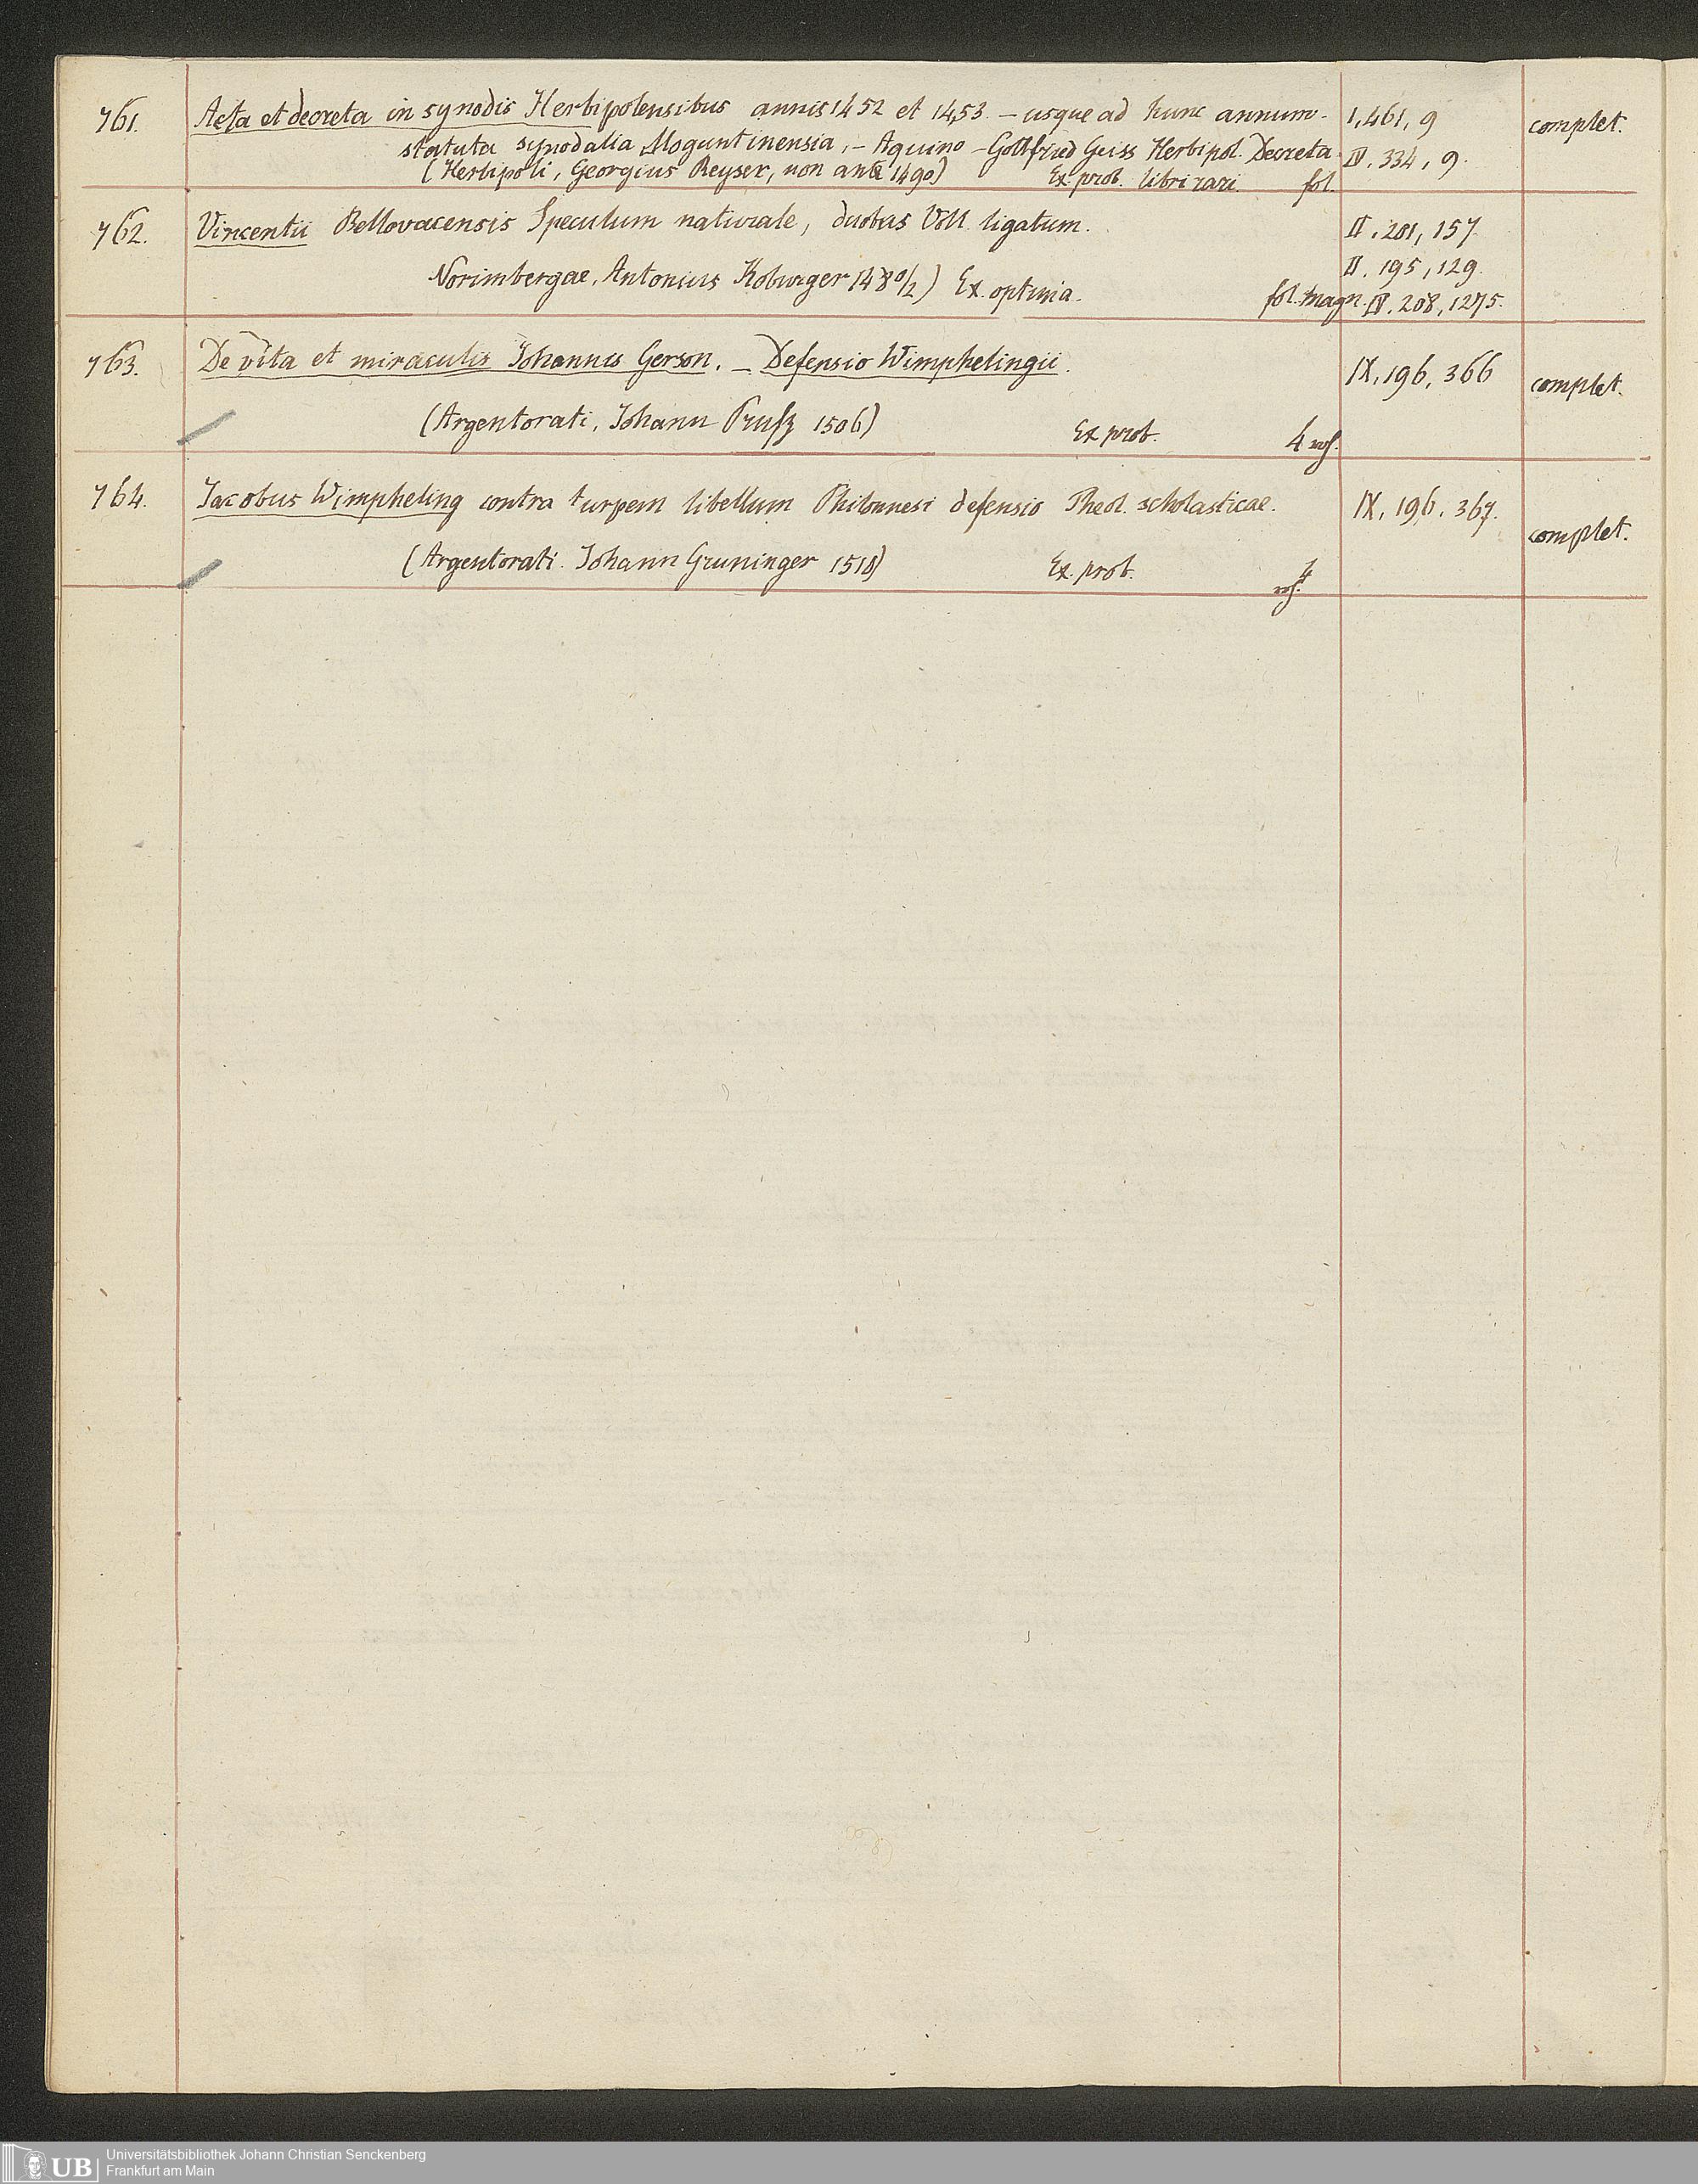 761. Acta et decreta in synodis Herbipolensibus annis 1452 et 1453. – usque ad hunc annum. I, 461, 9 complet.
statuta synodalia Moguntinensia, – Aquino – Gottfried Geiss Herbipol. Decreta IV. 334, 9.
(Herbipoli, Georgius Reyser, non ante 1490) Ex. prob. libri rari fol.
762. Vincentii Bellovacensis Speculum naturale, duobus Voll. ligatum. II. 201, 157.
II. 195, 129.
Norimbergae, Antonius Koburger 148 0/2) Ex. optima. fol. magn. IV. 208, 1275.
763. De vita et miraculis Johannis Gerson. – Defensio Wimphelingii. IX, 196, 366 complet.
(Argentorati, Johann Prusz 1506) Ex prob. 4
764. Jacobus Wimpheling contra turpem libellum Philomusi defensio Theol. scholasticae. IX, 196. 367. complet.
(Argentorati. Johann Gruninger 1510) Ex. prob. 4
UB Universitätsbibliothek Johann Christian Senckenberg
Frankfurt am Main